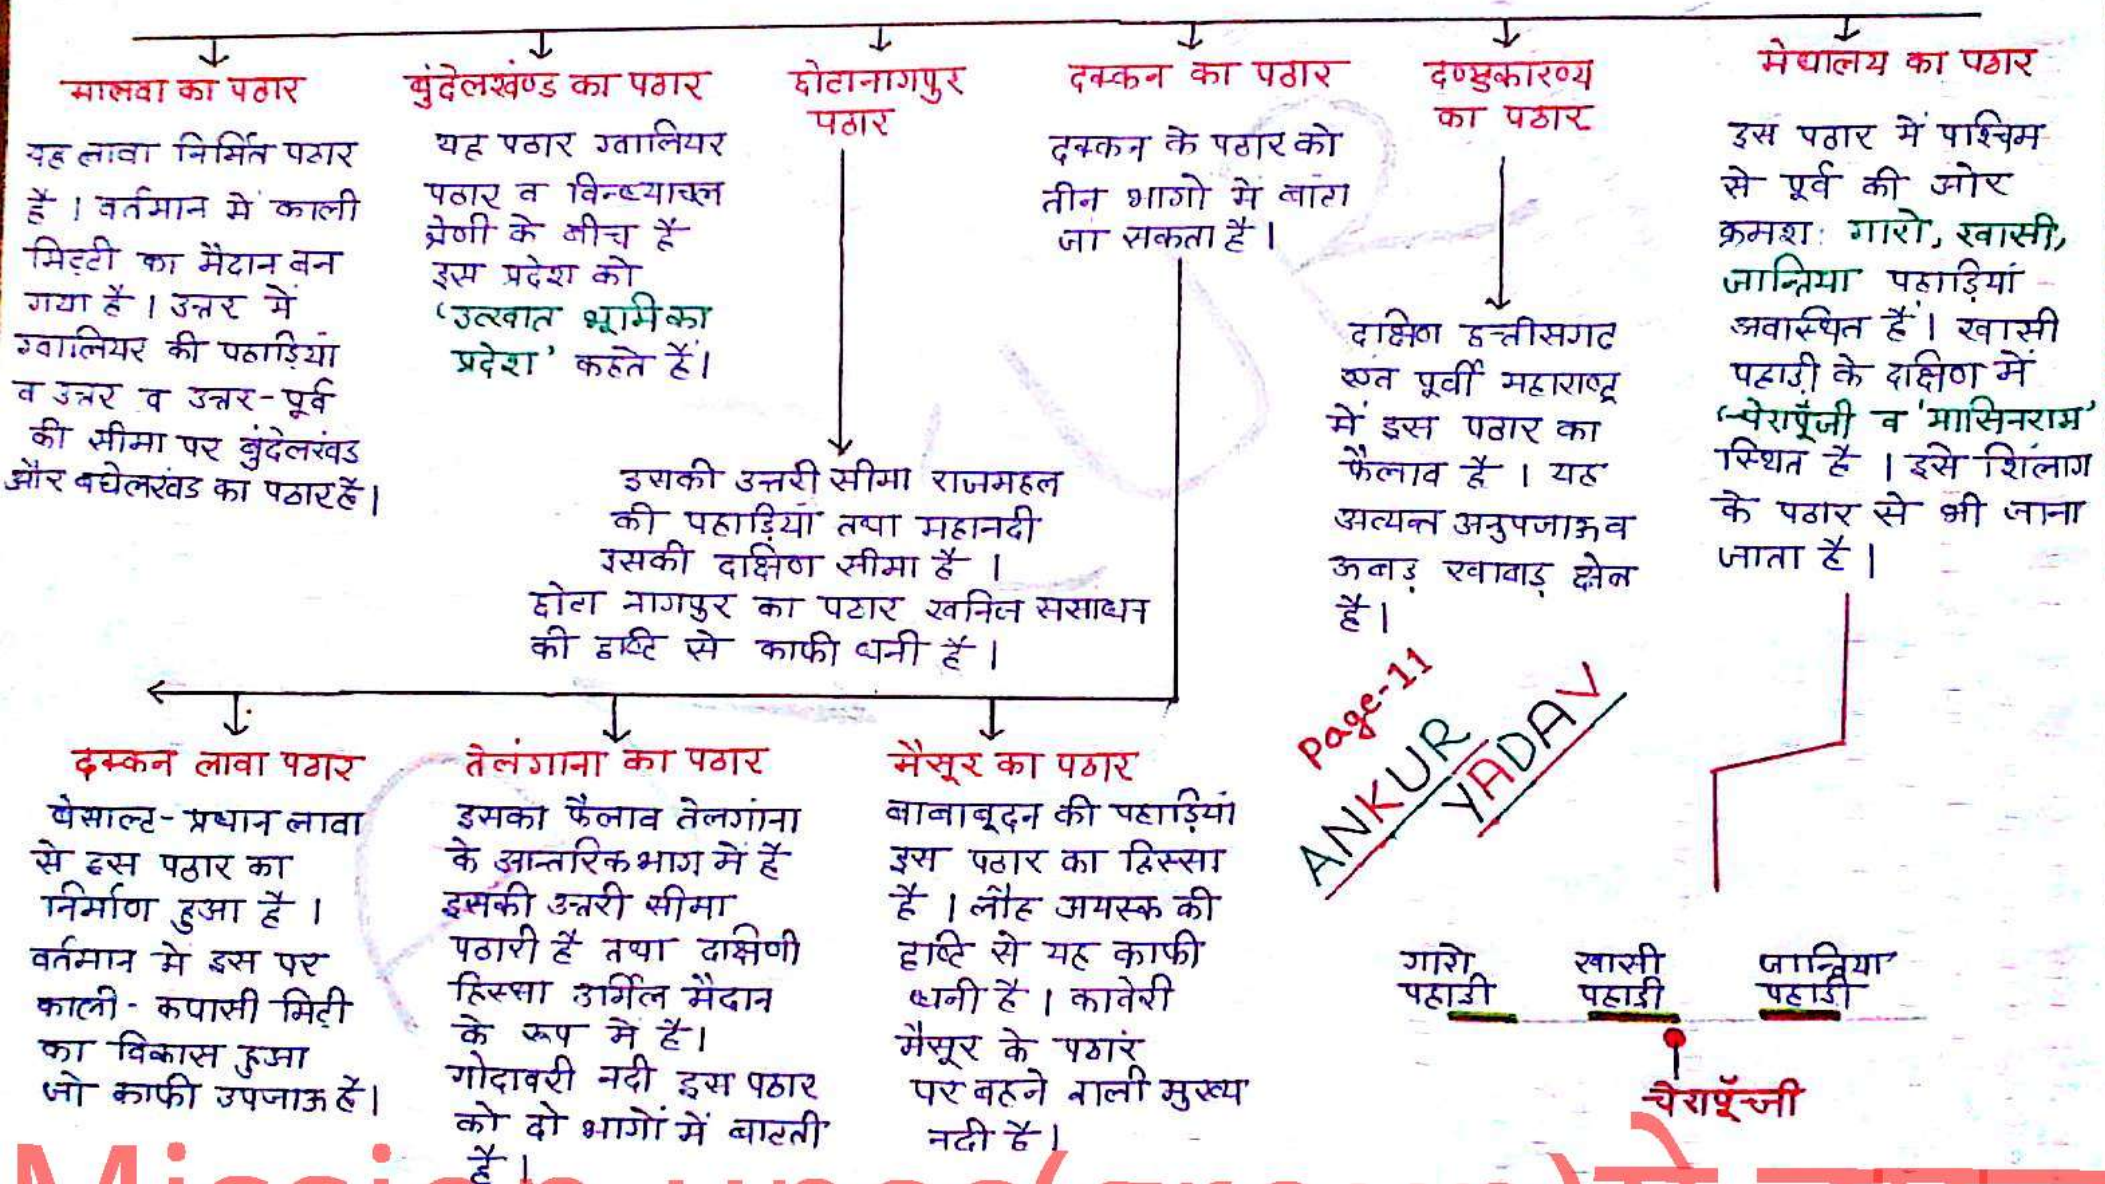 मालवा का पठार
यह लावा निर्मित पठार
है । वर्तमान में काली
मिट्टी का मैदान बन
गया है । उत्तर में
ग्वालियर की पहाड़ियां
व उत्तर व उत्तर-पूर्व
की सीमा पर बुंदेलखंड
और बघेलखंड का पठार है।
बुंदेलखण्ड का पठार
यह पठार ग्वालियर
पठार व विन्ध्याचल
श्रेणी के बीच है
इस प्रदेश को
'उत्खात भूमि का
प्रदेश' कहते हैं।
छोटानागपुर
पठार
इसकी उत्तरी सीमा राजमहल
की पहाड़ियां तथा महानदी
इसकी दक्षिण सीमा है ।
छोटा नागपुर का पठार खनिज ससाधन
की दृष्टि से काफी धनी है ।
दक्कन का पठार
दक्कन के पठार को
तीन भागो में बांटा
जा सकता है ।
दण्डकारण्य
का पठार
दक्षिण छत्तीसगढ
एवं पूर्वी महाराष्ट्र
में इस पठार का
फैलाव है । यह
अत्यन्त अनुपजाऊ व
ऊबड़ खाबाड़ क्षेत्र
है ।
मेघालय का पठार
इस पठार में पश्चिम
से पूर्व की ओर
क्रमश: गारो, खासी,
जान्तिया पहाड़ियां
अवस्थित हैं । खासी
पहाडी के दक्षिण में
'चेरापूँजी व 'मासिनराम'
स्थित है । इसे शिलाग
के पठार से भी जाना
जाता है ।
दक्कन लावा पठार
बेसाल्ट-प्रधान लावा
से इस पठार का
निर्माण हुआ है ।
वर्तमान मे इस पर
काली-कपासी मिटी
का विकास हुआ
जो काफी उपजाऊ है।
तेलंगाना का पठार
इसका फैलाव तेलगांना
के आन्तरिक भाग में है
इसकी उत्तरी सीमा
पठारी है तथा दक्षिणी
हिस्सा उर्मिल मैदान
के रूप में है।
गोदावरी नदी इस पठार
को दो भागों में बाटती
है ।
मैसूर का पठार
बाबाबूदन की पहाड़ियां
इस पठार का हिस्सा
है । लौह अयस्क की
दृष्टि से यह काफी
धनी है । कावेरी
मैसूर के पठार
पर बहने वाली मुख्य
नदी है ।
page-11
ANKUR
YADAV
गारो
पहाडी
खासी
पहाडी
जान्तिया
पहाडी
चेरापूँजी